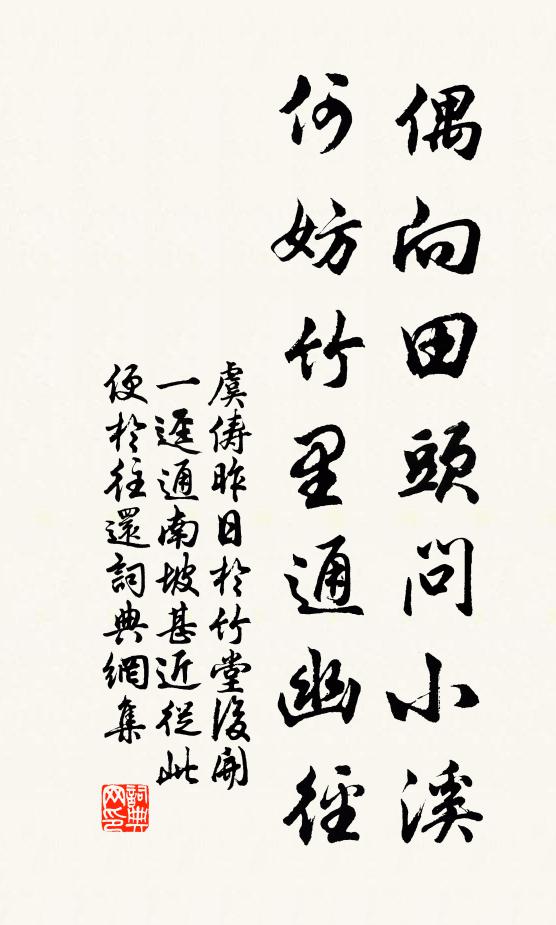 偶向田頭問小溪
何妨竹里通幽徑
虞儔昨日於竹堂後開
一逕通南坡甚近從此
便於往還詞典網集
詞典
网印